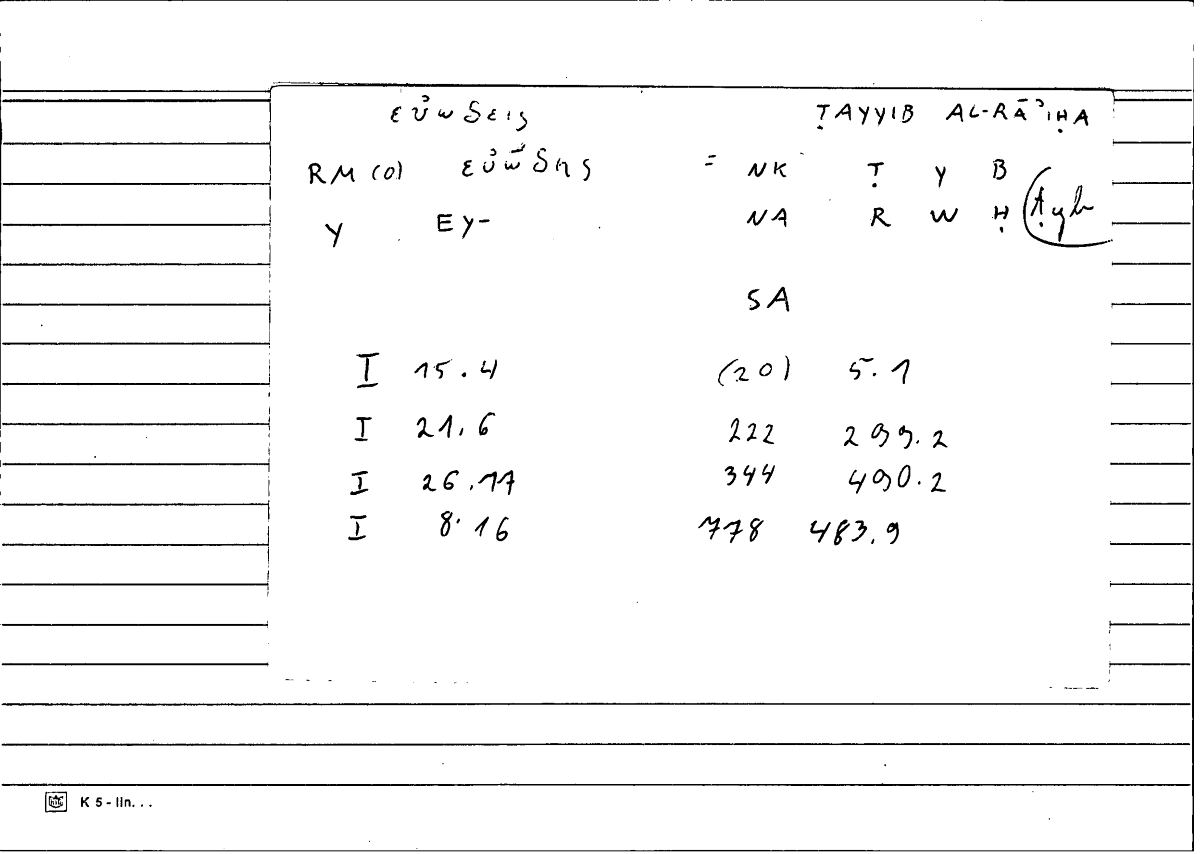 εὐώδεις ṬAYYIB AL-RĀʾIḤA
RM (O) εὐώδης = NK Ṭ Y B
Y EY- NA R W Ḥ ṭyb
SA
I 15.4 (20) 5.1
I 21.6 222 299.2
I 26.17 344 490.2
I 8.16 778 483.9
K 5 - lin...